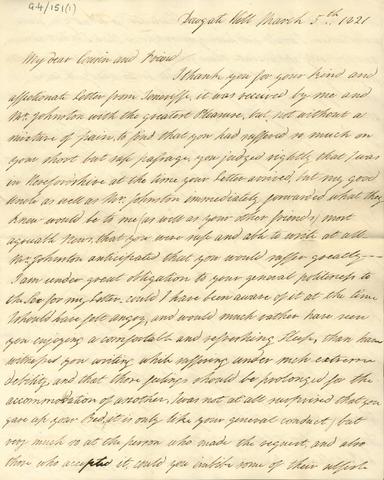 G4/151(1)
Dowgate Hill March 5th. 1821
My dear Cousin and Friend
I thank you for your kind and
affectionate Letter from Teneriffe, it was received by me and
Mrs. Johnston with the greatest Pleasure, but, not without a
mixture of pain, to find that you had suffered so much on
your short but safe passage. you judged rightly that I was
in Herefordshire at the time your Letter arrived, but my good
Uncle as well as Mr. Johnston immediately forwarded what they
knew would be to me (as well as your other friends) most
agreeable News, that you were safe and able to write at all
Mr. Johnston anticipated that you would suffer greatly —
I am under great obligation to your general politeness to
the for my Letter. could I have been aware of it at the time
I should have felt angry, and would much rather have seen
you enjoying a comfortable and refreshing Sleep, than have
witnessed you writing while suffering under such extreme
debility, and that those feelings should be prolonged for the
accommodation of another, I was not at all surprised that you
gave up your Bed, it is only like your general conduct; but
very much so at the person who made the request, and also
those who accepted it. could you imbibe some of their selfish